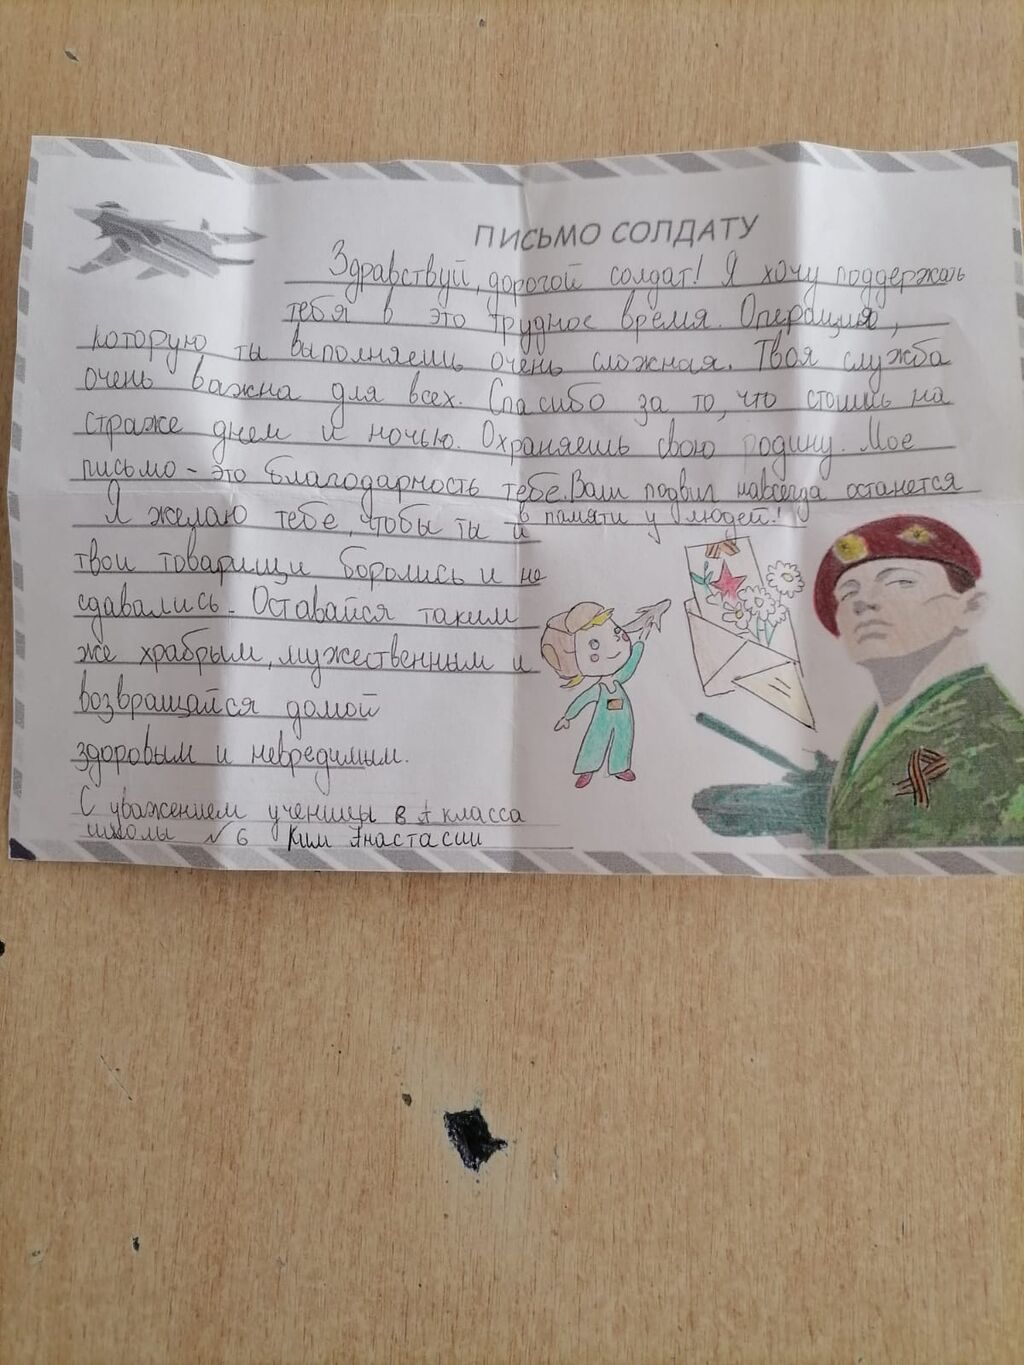 ПИСЬМО СОЛДАТУ
Здравствуй, дорогой солдат! Я хочу поддержать
тебя в это трудное время. Операция,
которую ты выполняешь очень сложная. Твоя служба
очень важна для всех. Спасибо за то, что стоишь на
страже днем и ночью. Охраняешь свою родину. Мое
письмо - это благодарность тебе. Ваш подвиг навсегда останется
в памяти у людей!
Я желаю тебе, чтобы ты и
твои товарищи боролись и не
сдавались. Оставайся таким
же храбрым, мужественным и
возвращайся домой
здоровым и невредимым.
С уважением ученицы в класса
школы №6 Ким Анастасии